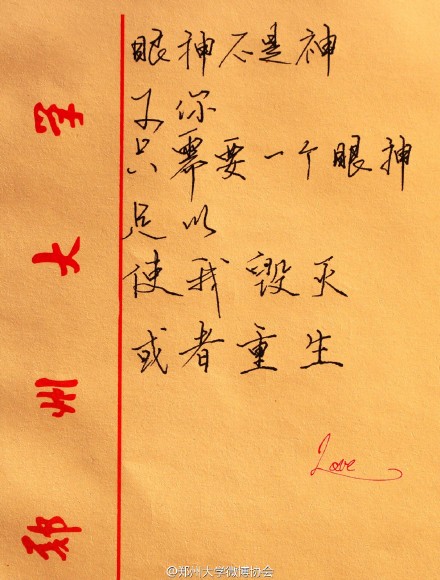 郑州大学
眼神不是神
你
只需要一个眼神
足以
使我毁灭
或者重生
Love
@郑州大学微博协会